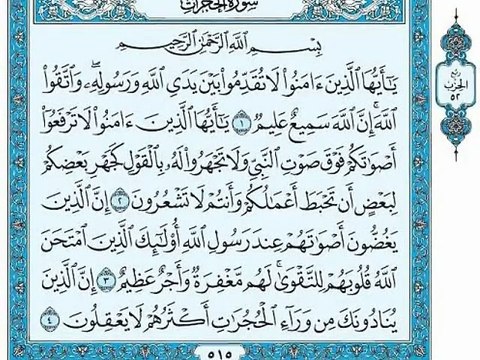 سُورَةُ الحُجُرَاتِ
بِسْمِ ٱللَّهِ ٱلرَّحْمَٰنِ ٱلرَّحِيمِ
يَٰٓأَيُّهَا ٱلَّذِينَ ءَامَنُوا۟ لَا تُقَدِّمُوا۟ بَيْنَ يَدَىِ ٱللَّهِ وَرَسُولِهِۦ ۖ وَٱتَّقُوا۟
ٱللَّهَ ۚ إِنَّ ٱللَّهَ سَمِيعٌ عَلِيمٌ ١ يَٰٓأَيُّهَا ٱلَّذِينَ ءَامَنُوا۟ لَا تَرْفَعُوٓا۟
أَصْوَٰتَكُمْ فَوْقَ صَوْتِ ٱلنَّبِىِّ وَلَا تَجْهَرُوا۟ لَهُۥ بِٱلْقَوْلِ كَجَهْرِ بَعْضِكُمْ
لِبَعْضٍ أَن تَحْبَطَ أَعْمَٰلُكُمْ وَأَنتُمْ لَا تَشْعُرُونَ ٢ إِنَّ ٱلَّذِينَ
يَغُضُّونَ أَصْوَٰتَهُمْ عِندَ رَسُولِ ٱللَّهِ أُو۟لَٰٓئِكَ ٱلَّذِينَ ٱمْتَحَنَ
ٱللَّهُ قُلُوبَهُمْ لِلتَّقْوَىٰ ۚ لَهُم مَّغْفِرَةٌ وَأَجْرٌ عَظِيمٌ ٣ إِنَّ ٱلَّذِينَ
يُنَادُونَكَ مِن وَرَآءِ ٱلْحُجُرَٰتِ أَكْثَرُهُمْ لَا يَعْقِلُونَ ٤
٥١٥
ربع
الحزب
٥٢